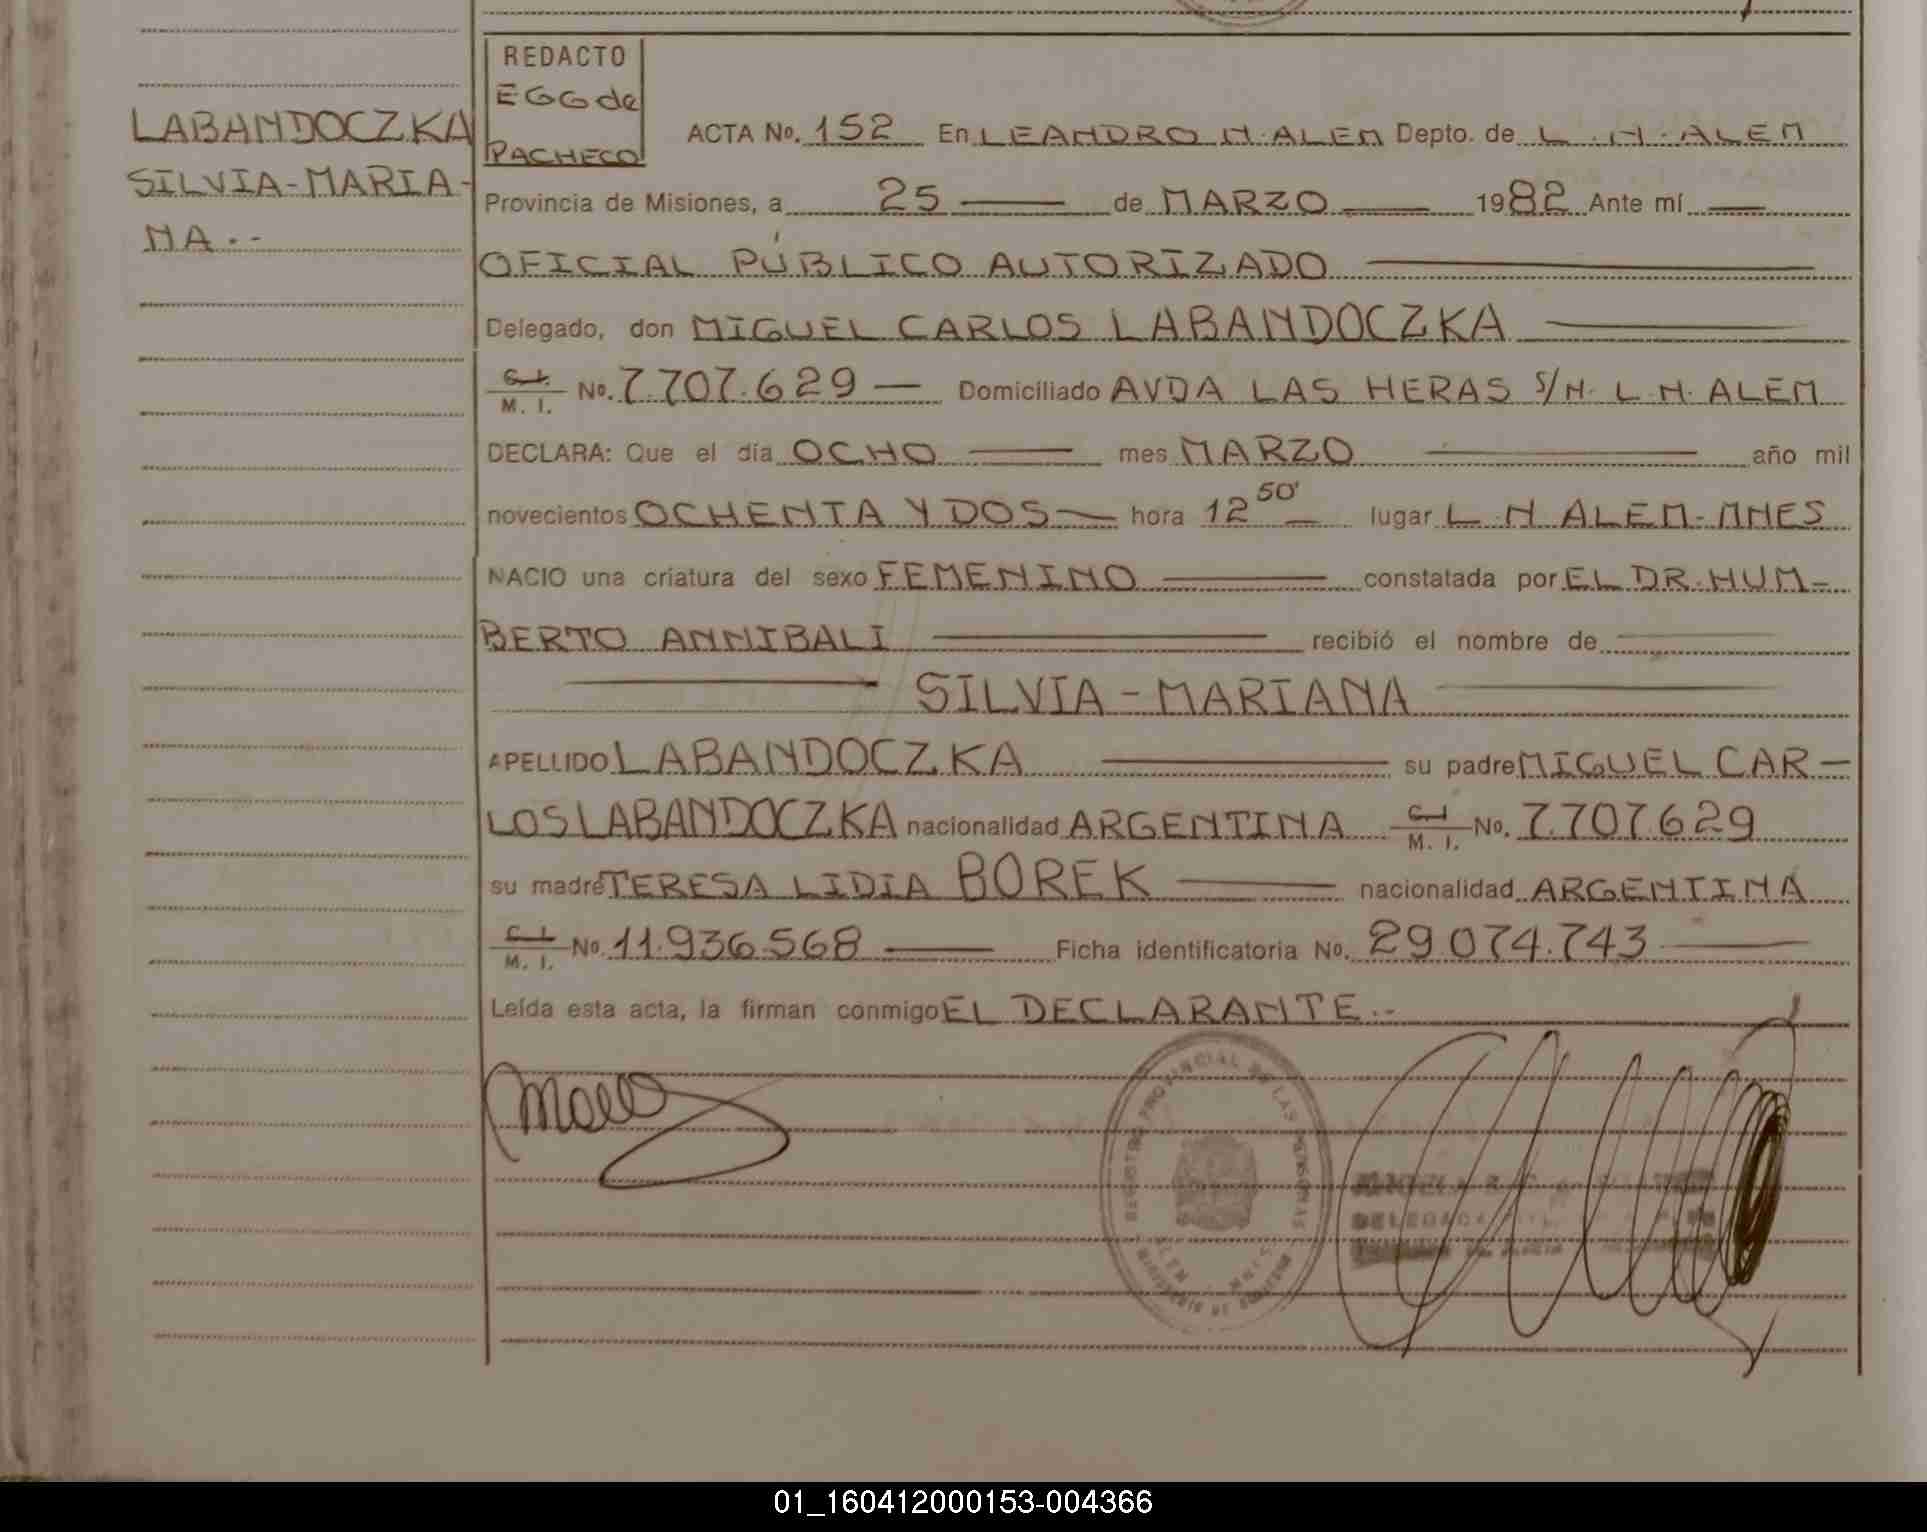 LABANDOCZKA
SILVIA-MARIA-
NA.--
REDACTO
EGG de
PACHECO
ACTA No. 152 En LEANDRO N. ALEM Depto. de L. N. ALEM
Provincia de Misiones, a 25 de MARZO 1982 Ante mí
OFICIAL PÚBLICO AUTORIZADO
Delegado, don MIGUEL CARLOS LABANDOCZKA
C. I. M. I. No. 7.707.629 Domiciliado AVDA LAS HERAS S/N. L. N. ALEM
DECLARA: Que el día OCHO mes MARZO año mil
novecientos OCHENTA Y DOS hora 12 50' lugar L. N ALEM-MNES
NACIO una criatura del sexo FEMENINO constatada por EL DR. HUM-
BERTO ANNIBALI recibió el nombre de
SILVIA-MARIANA
APELLIDO LABANDOCZKA su padre MIGUEL CAR-
LOS LABANDOCZKA nacionalidad ARGENTINA C. I. M. I. No. 7.707.629
su madre TERESA LIDIA BOREK nacionalidad ARGENTINA
C. I. M. I. No. 11.936.568 Ficha identificatoria No. 29.074.743
Leída esta acta, la firman conmigo EL DECLARANTE.-
REGISTRO PROVINCIAL DE LAS PERSONAS
MINISTERIO DE GOBIERNO
ALEM - MNES
DELEGADA
01_160412000153-004366